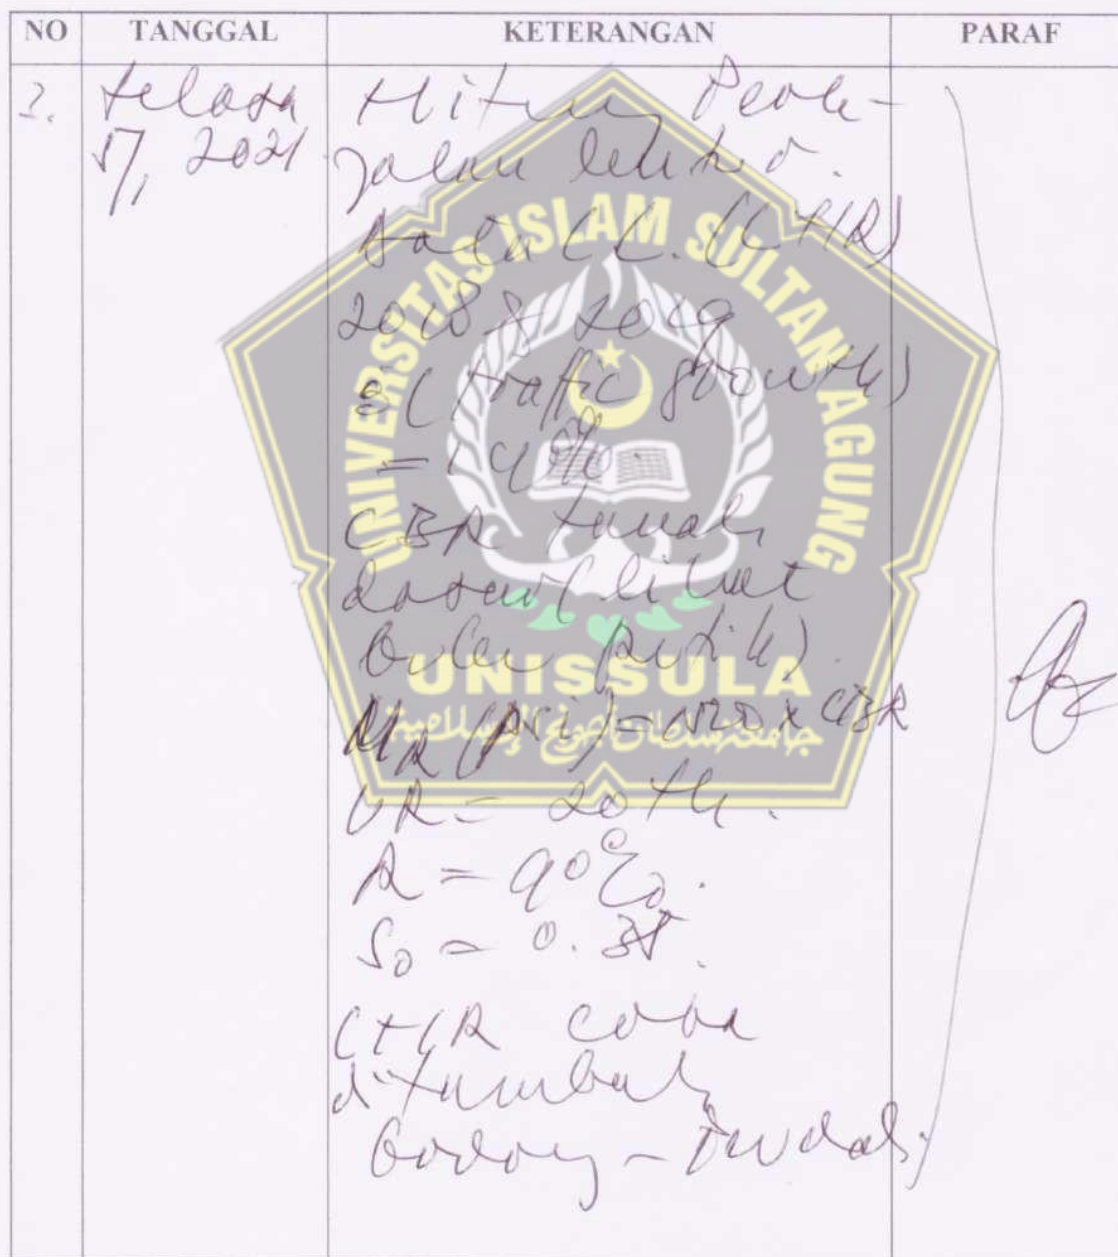 NO TANGGAL KETERANGAN PARAF
2. Selasa Hitung Perk-
5/1 2021 jalan lentur.
Data LL. (LHR)
2018 & 2019
i (traffic growth)
= 14%.
CBR tanah
dasar (lihat
buku putih).
MR (psi) = 1500 x CBR
UR = 20 th.
R = 90%.
So = 0.35.
LHR coba
ditambah
UNIVERSITAS ISLAM SULTAN AGUNG
UNISSULA
جامعة سلطان أجونج الإسلامية